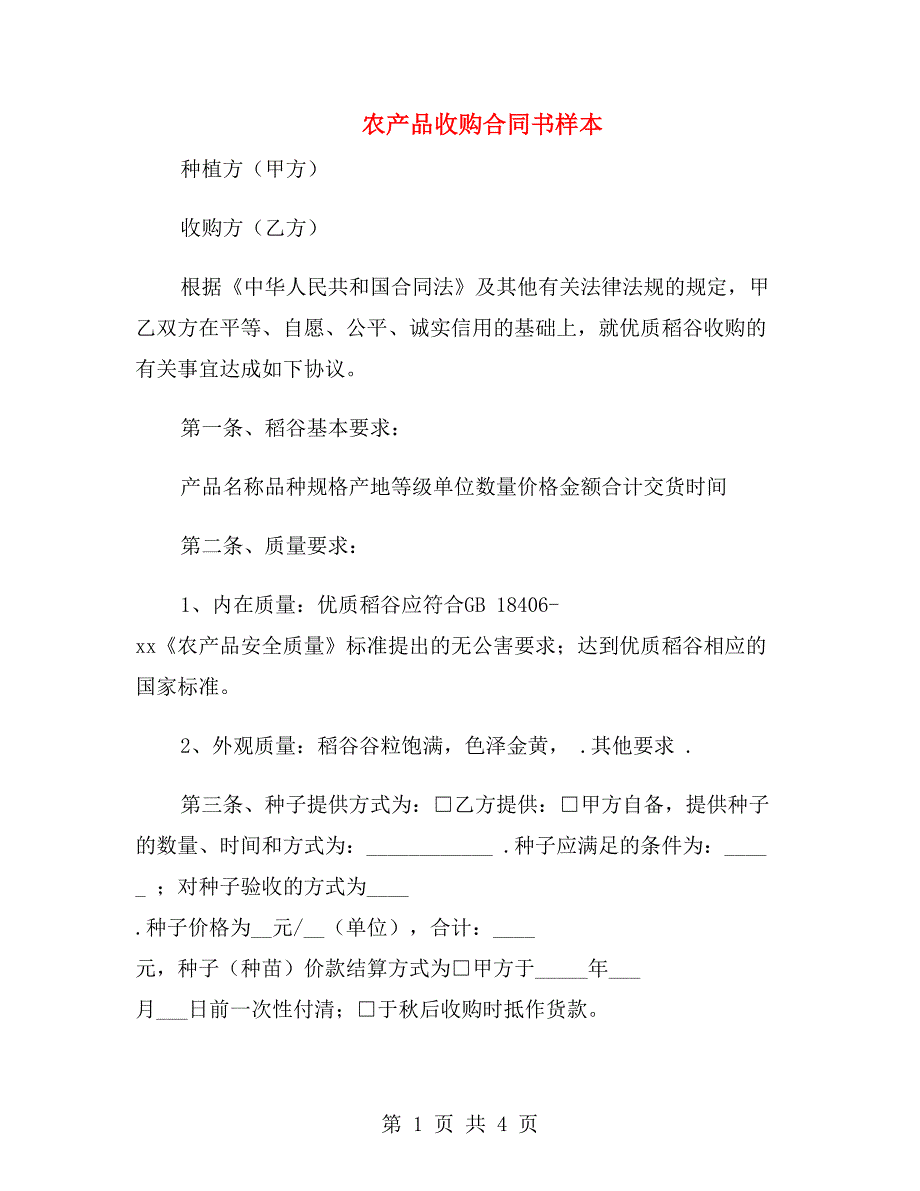 农产品收购合同书样本
种植方（甲方）
收购方（乙方）
根据《中华人民共和国合同法》及其他有关法律法规的规定，甲
乙双方在平等、自愿、公平、诚实信用的基础上，就优质稻谷收购的
有关事宜达成如下协议。
第一条、稻谷基本要求：
产品名称品种规格产地等级单位数量价格金额合计交货时间
第二条、质量要求：
1、内在质量：优质稻谷应符合GB 18406-
xx《农产品安全质量》标准提出的无公害要求；达到优质稻谷相应的
国家标准。
2、外观质量：稻谷谷粒饱满，色泽金黄， .其他要求 .
第三条、种子提供方式为：□乙方提供：□甲方自备，提供种子
的数量、时间和方式为：____________ .种子应满足的条件为：____
_ ；对种子验收的方式为____
.种子价格为__元/__（单位），合计：____
元，种子（种苗）价款结算方式为□甲方于_____年___
月___日前一次性付清；□于秋后收购时抵作货款。
第 1 页 共 4 页